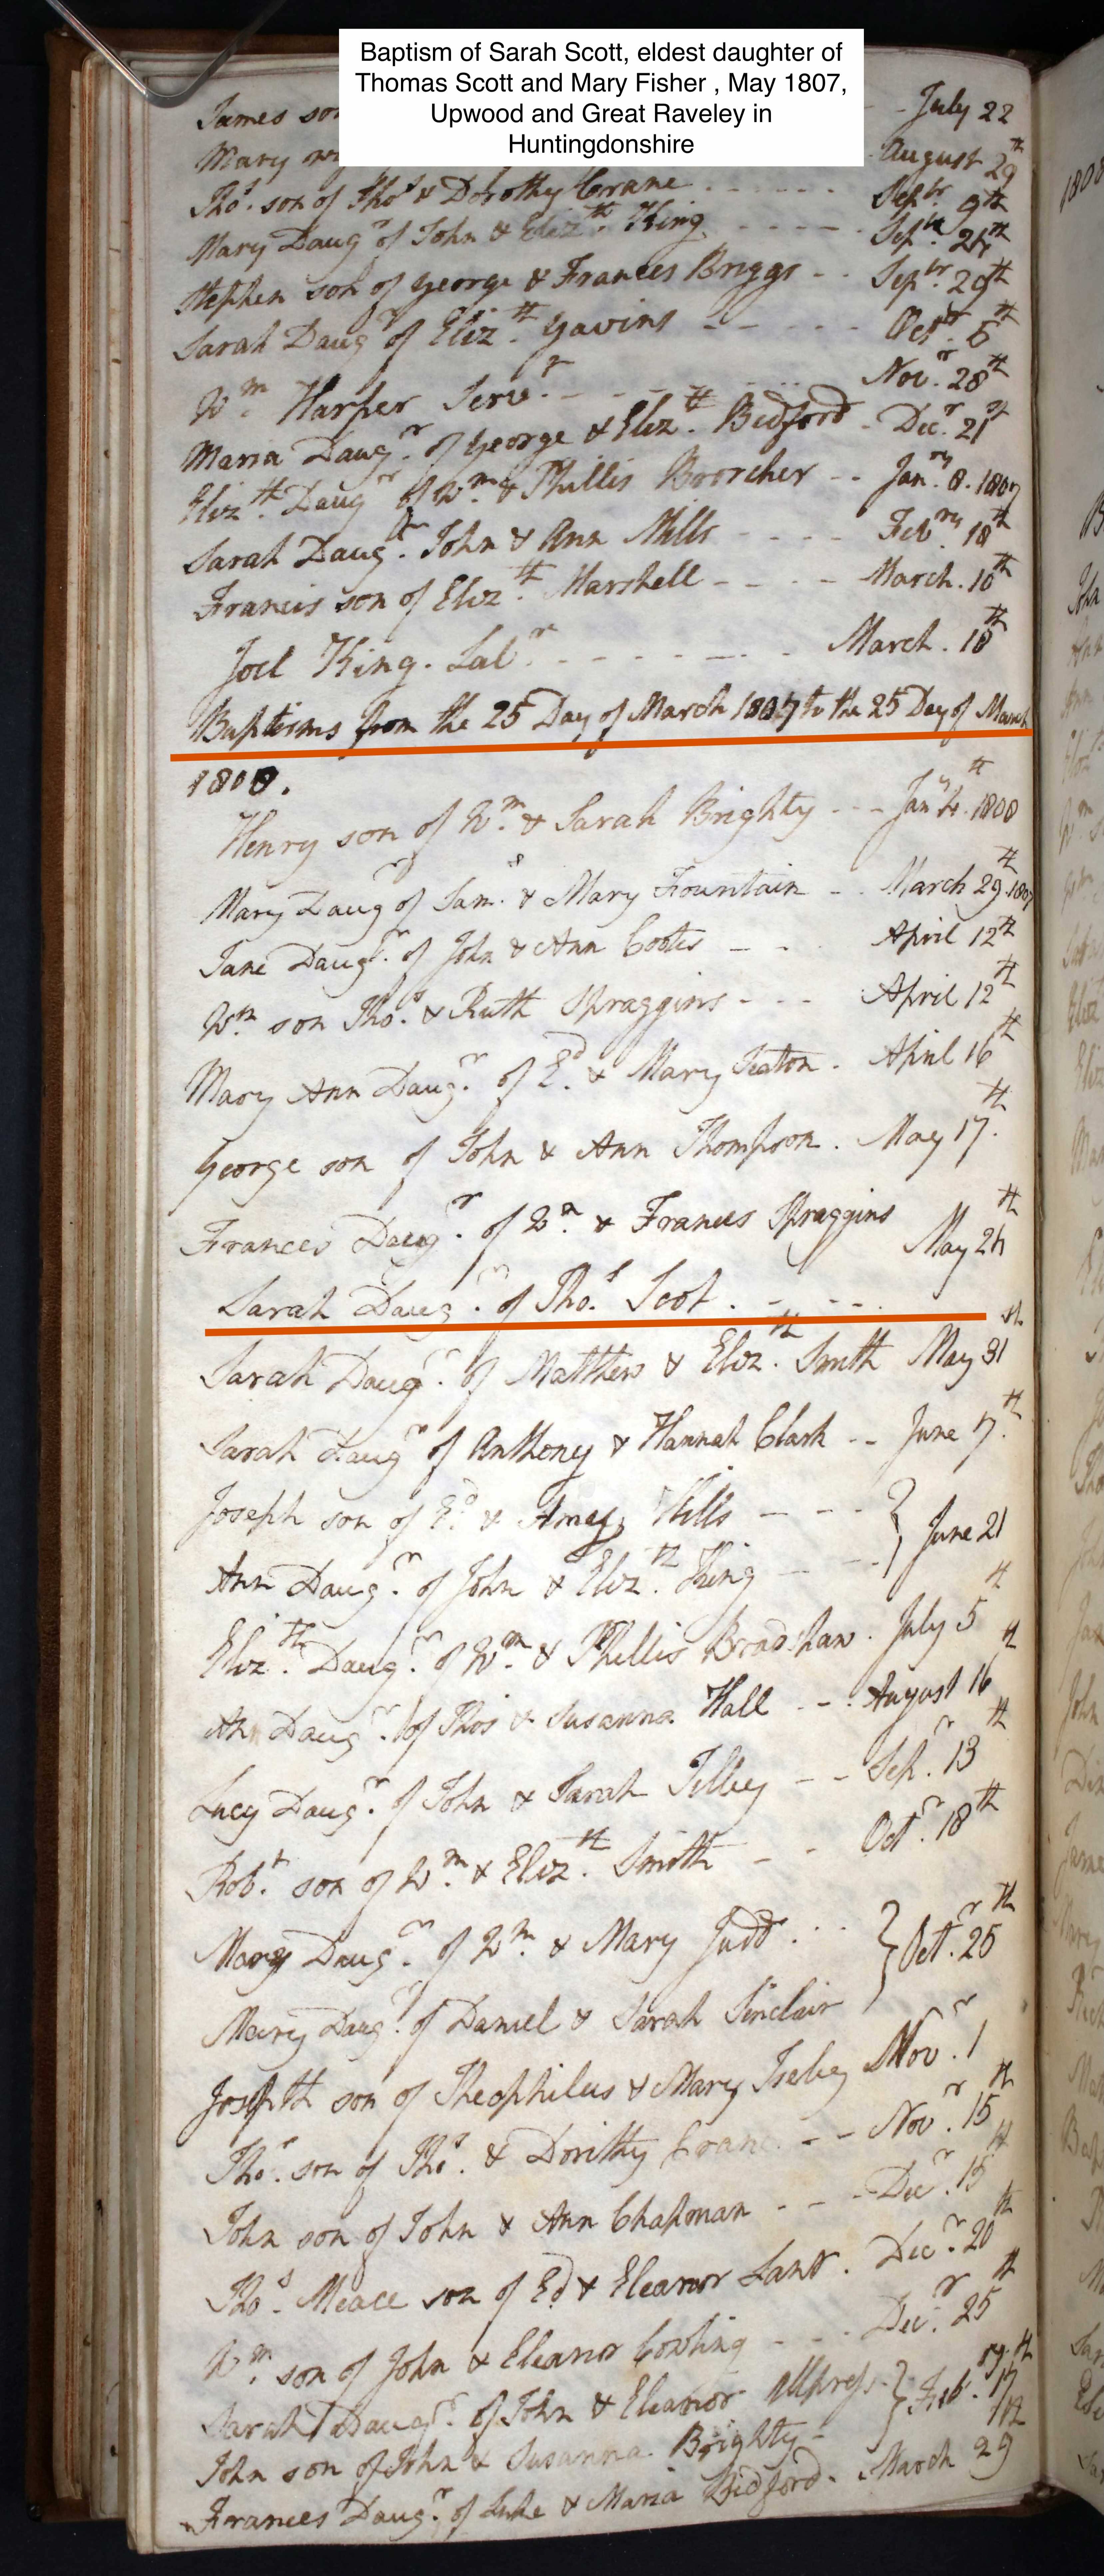 Baptism of Sarah Scott, eldest daughter of
Thomas Scott and Mary Fisher , May 1807,
Upwood and Great Raveley in
Huntingdonshire
James son July 22
Mary August 29th
Thos. son of Thos & Dorothy Crane Sepbr. 9th
Mary Daugr of John & Elizth. King Sepbr. 24th
Stephen son of George & Frances Briggs Sepbr. 29th
Sarah Daugr of Elizth Gavins Octr. 5th
Wm. Harper Servt. Novr. 28th
Maria Daugr. of George & Elizth. Bedford Decr. 21st
Elizth. Daugr of Wm. & Phillis Boorcher Janry. 8. 1807
Sarah Daugr. John & Ann Mills Febry. 18th
Francis son of Elizth. Marshell March. 10th
Joel King. Labr. March. 18th
Baptisms from the 25 Day of March 1807 to the 25 Day of March
1808.
Henry son of Wm. & Sarah Brighty Jany 4th. 1808
Mary Daugr of Saml. & Mary Fountain March 29th 1807
Jane Daugr. of John & Ann Cootes April 12th
Wm. son Thos. & Ruth Spraggins April 12th
Mary Ann Daugr. of Ed. & Mary Seaton. April 16th
George son of John & Ann Thompson. May 17th.
Frances Daugr. of Wm. & Frances Spraggins May 24th
Sarah Daugr. of Thos. Scot.
Sarah Daugr. of Matthew & Elizth. Smith May 31st
Sarah Daugr of Anthony & Hannah Clark June 7th.
Joseph son of Ed. & Amey Hills } June 21
Ann Daugr. of John & Elizth. King
Elizth. Daugr. of Wm. & Phillis Bradshaw. July 5th
Ann Daugr. of Thos & Susanna Hall August 16th
Lucy Daugr. of John & Sarah Tilley Sepr. 13th
Robt. son of Wm. & Elizth. Smith Octr. 18th
Mary Daugr. of Wm. & Mary Judd } Octr. 25th
Mary Daugr. of Daniel & Sarah Sinclair
Joseph son of Theophilus & Mary Novr. 1
Thos. son of Thos. & Dorithy Crane Novr. 15th
John son of John & Ann Chapman Decr. 15th
Thos. Meace son of Ed & Eleanor Decr. 20th
Wm. son of John & Eleanor Gowling Decr. 25th
Sarah Daugr. of John & Eleanor Allpress } Febry. 17th
John son of John & Susanna Brighty
Frances Daugr. of Luke & Maria Bedford. March 29th